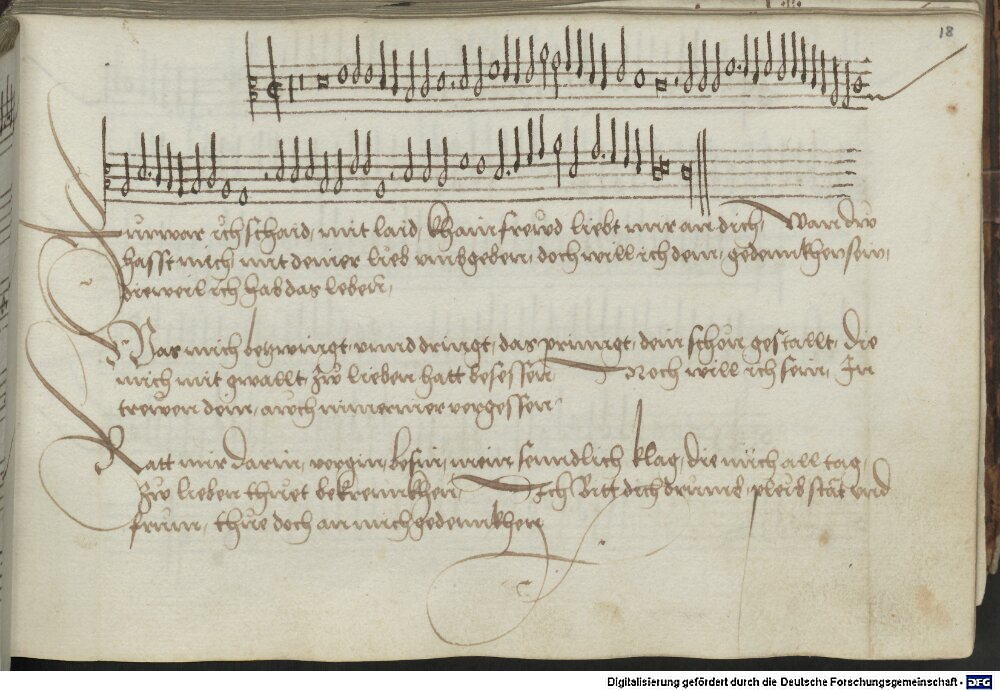 18
Fürwar ich schaid, mit laid, khain frewd liebt mir an dich, Wan dw
hasst mich mit deiner lieb vmbgeben, doch will ich dein, gedennkhen sein,
dieweil ich hab das leben,
Das mich bezwingt, vnnd dringt, das pringt, dein schön gestallt, die
mich mit gwallt, Zw lieben hatt besessen, Noch will ich sein, In
trewen dein, auch nimermer vergessen
Ratt mir darin, vergin, besin, mein senndlich klag, die mich all tag,
Zw lieben thuet bekrennkhen, Ich Bitt dich drumb, pleib stät vnd
frum, thue doch an mich gedennkhen
Digitalisierung gefördert durch die Deutsche Forschungsgemeinschaft - DFG